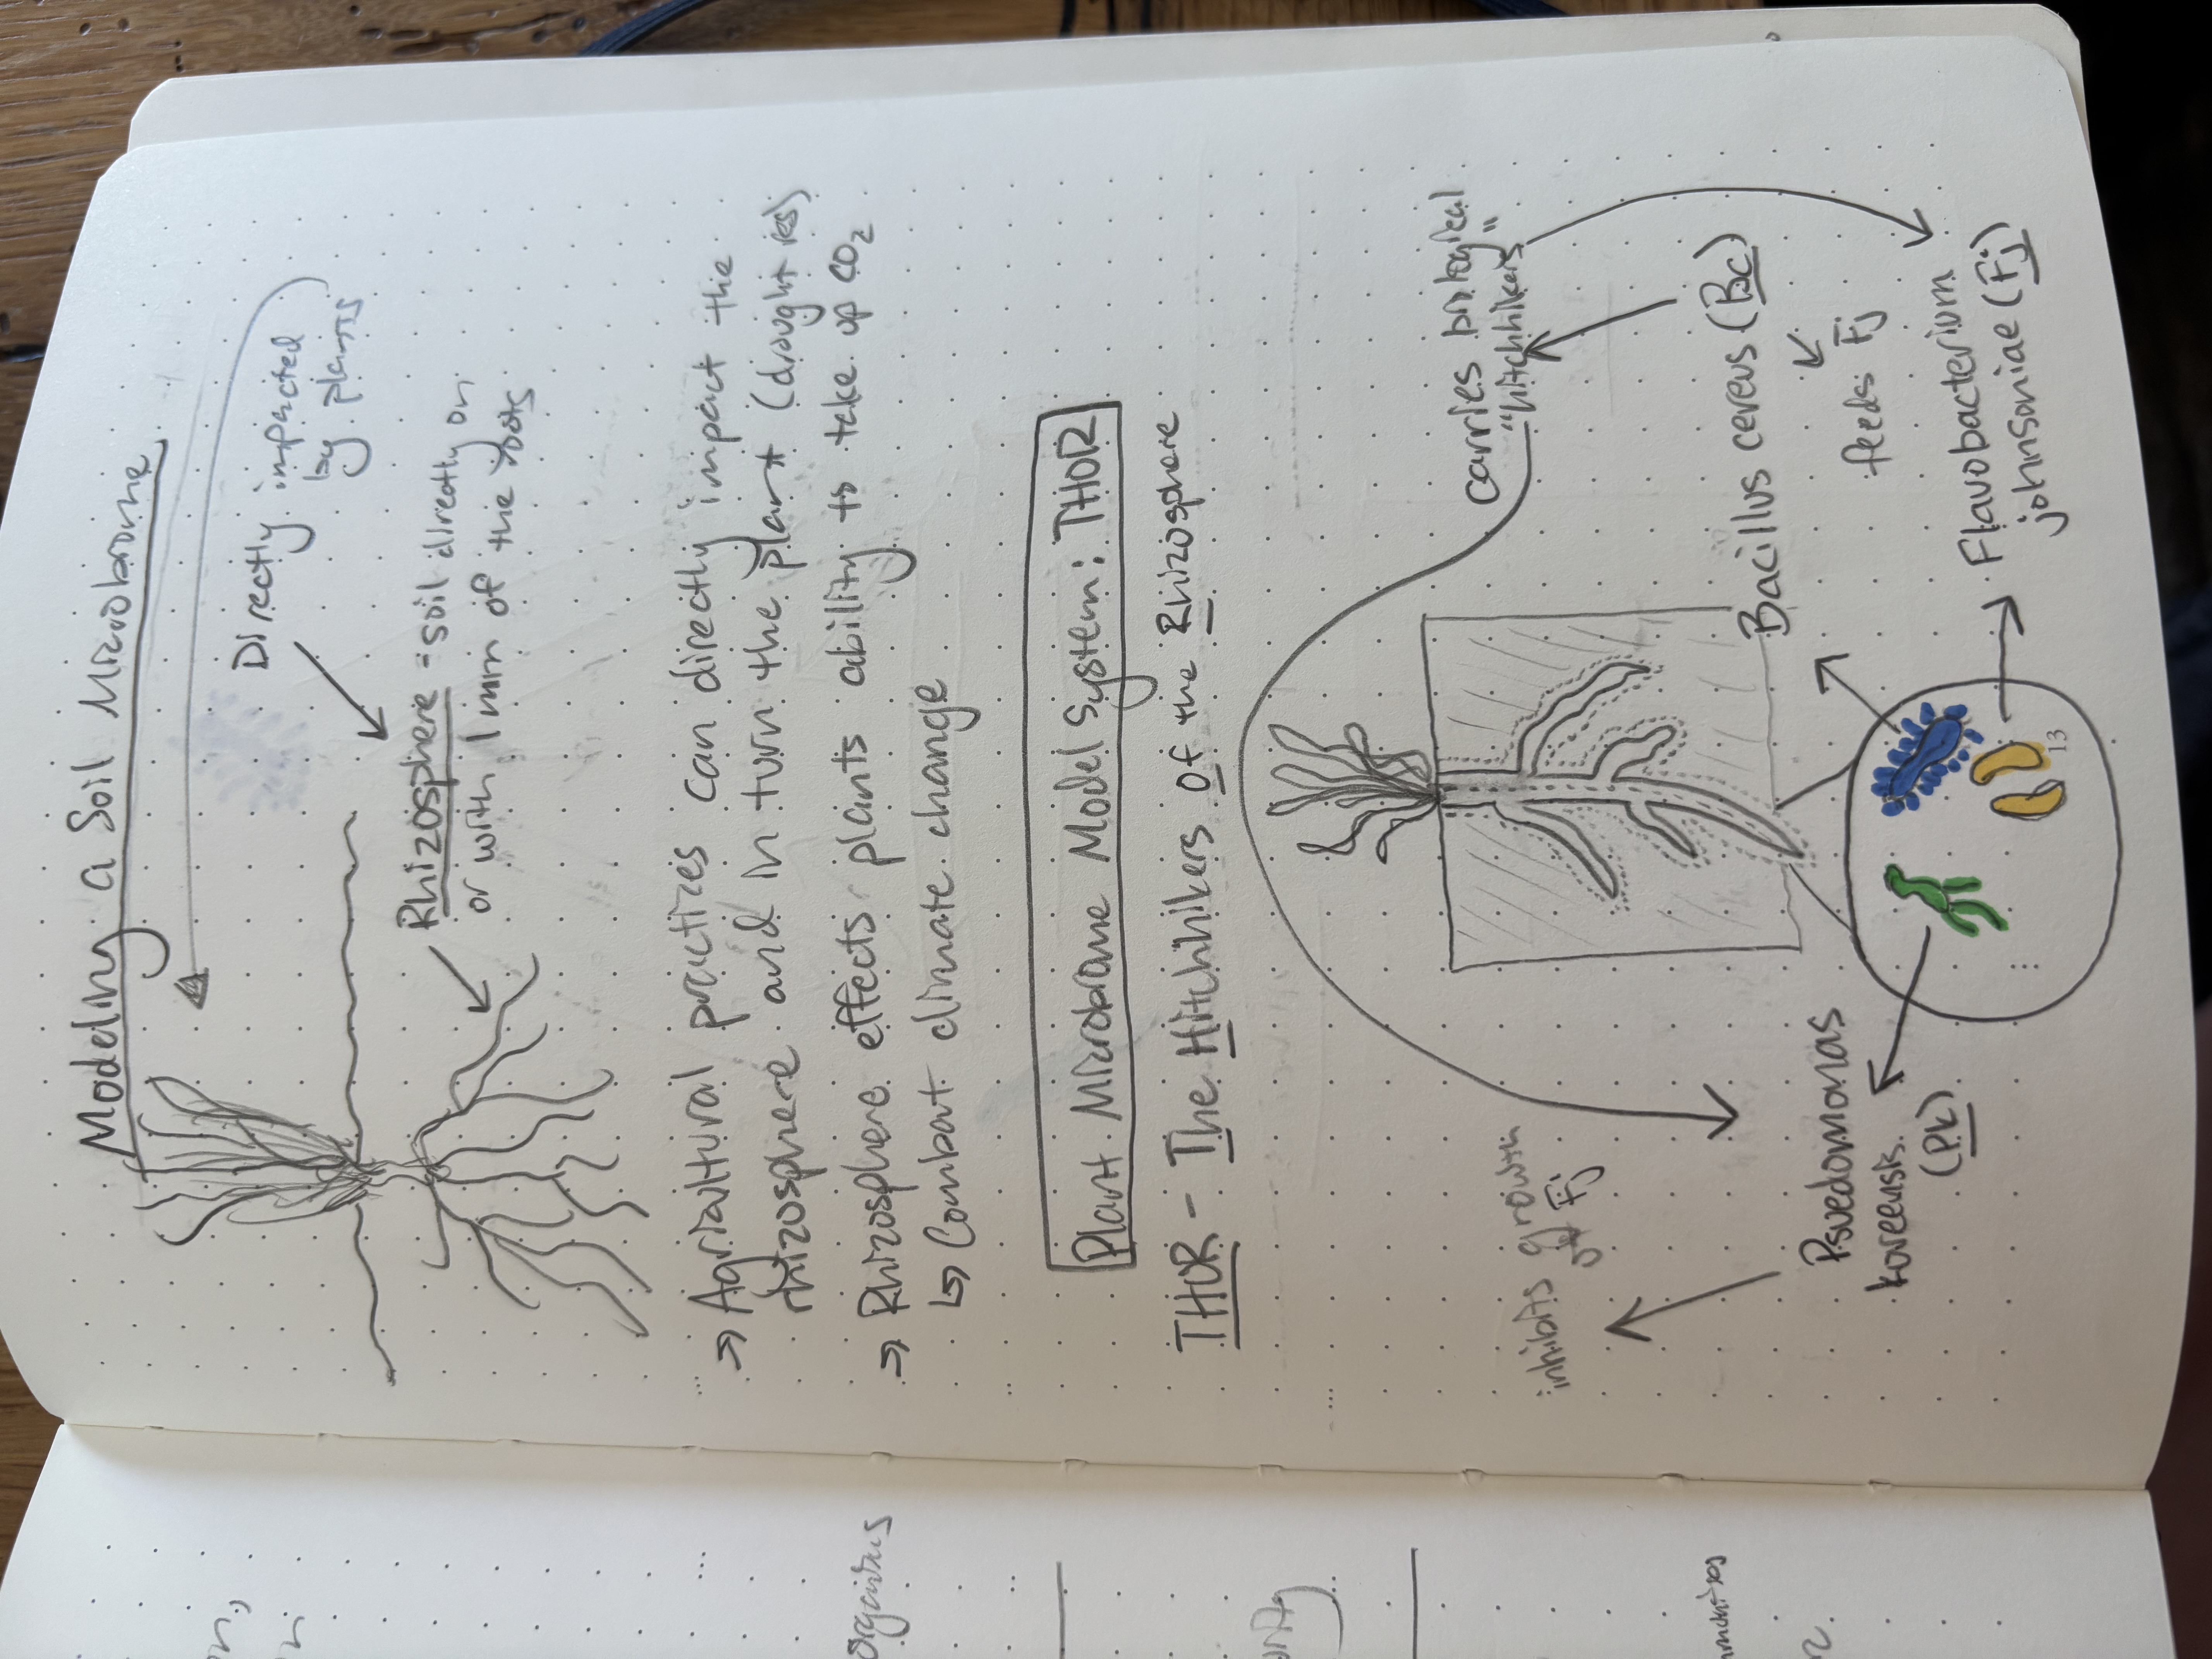 Modeling a Soil Microbiome
Directly impacted
by plants
Rhizosphere = soil directly on
or with 1 mm of the roots
→ Agricultural practices can directly impact the
rhizosphere and in turn the plant (drought res)
→ Rhizosphere effects plants ability to take up CO2
↳ Combat climate change
Plant Microbiome Model System: THOR
THOR - The Hitchhikers of the Rhizosphere
carries biological
"hitchhikers"
inhibits growth
of Fj
Bacillus cereus (Bc)
feeds Fj
Psuedomonas
koreensis
(Pk)
Flavobacterium
johnsoniae (Fj)
13
organisms